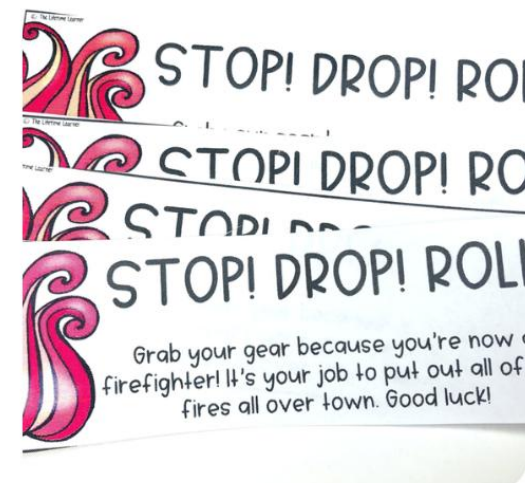 © The Lifetime Learner
STOP! DROP! RO
© The Lifetime Learner
STOP! DROP! RO
STOP!
STOP! DROP! ROLL
Grab your gear because you're now
firefighter! It's your job to put out all of
fires all over town. Good luck!